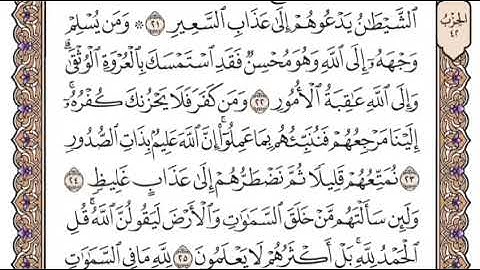 الشَّيْطَٰنُ يَدْعُوهُمْ إِلَىٰ عَذَابِ ٱلسَّعِيرِ ٢١ ۞ وَمَن يُسْلِمْ
وَجْهَهُۥٓ إِلَى ٱللَّهِ وَهُوَ مُحْسِنٌ فَقَدِ ٱسْتَمْسَكَ بِٱلْعُرْوَةِ ٱلْوُثْقَىٰۗ
وَإِلَى ٱللَّهِ عَٰقِبَةُ ٱلْأُمُورِ ٢٢ وَمَن كَفَرَ فَلَا يَحْزُنكَ كُفْرُهُۥٓۚ
إِلَيْنَا مَرْجِعُهُمْ فَنُنَبِّئُهُم بِمَا عَمِلُوٓا۟ۚ إِنَّ ٱللَّهَ عَلِيمٌۢ بِذَاتِ ٱلصُّدُورِ
٢٣ نُمَتِّعُهُمْ قَلِيلًا ثُمَّ نَضْطَرُّهُمْ إِلَىٰ عَذَابٍ غَلِيظٍ ٢٤
وَلَئِن سَأَلْتَهُم مَّنْ خَلَقَ ٱلسَّمَٰوَٰتِ وَٱلْأَرْضَ لَيَقُولُنَّ ٱللَّهُۚ قُلِ
ٱلْحَمْدُ لِلَّهِۚ بَلْ أَكْثَرُهُمْ لَا يَعْلَمُونَ ٢٥ لِلَّهِ مَا فِى ٱلسَّمَٰوَٰتِ
الحِزْب
٤٢